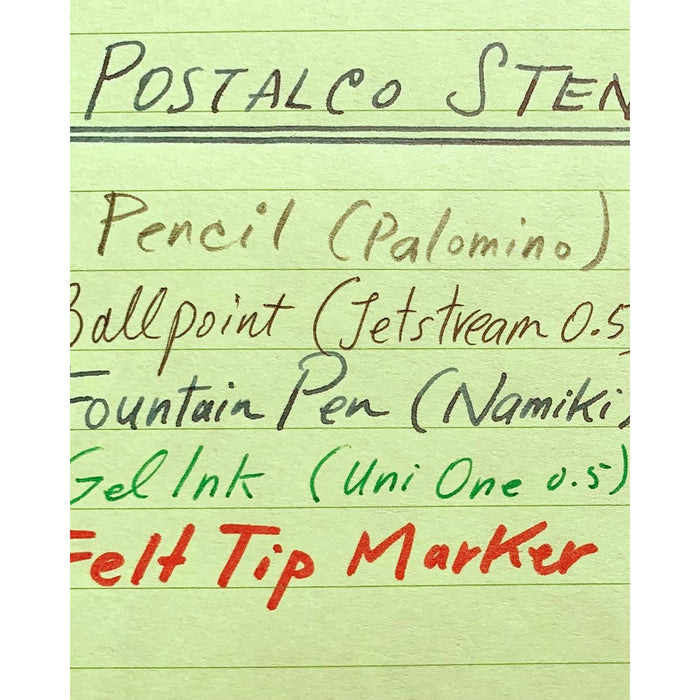 POSTALCO STEN
Pencil (Palomino)
Ballpoint (Jetstream 0.5)
Fountain Pen (Namiki)
Gel Ink (Uni One 0.5)
Felt Tip Marker